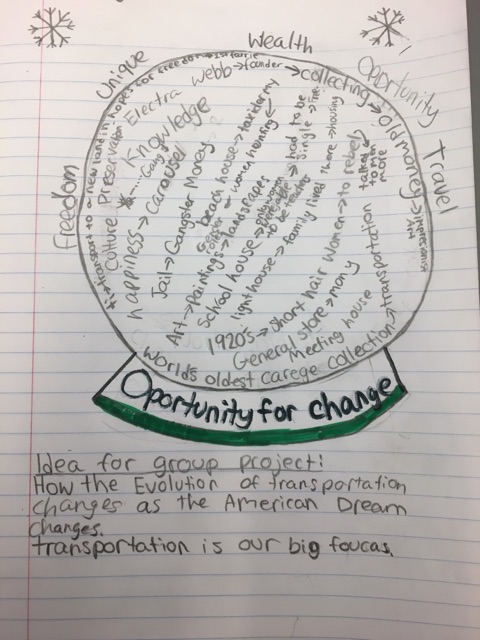 Unique
Wealth
Oportunity
Travel
Freedom
transport to a new land in hopes for freedom
Electra Webb → founder → collecting → old money →
Culture Preservation
Knowledge
happiness → Carousel
Jail → Gangster Money
Art → Paintings → landscapes
beach house → taxidermy
School house →
women housing
had to be single
lighthouse → family lived there → housing
1920's → Short hair women → to rebel
talked to men more
General store → many
Meeting house
World's oldest carege collection → transportation
Oportunity for change
Idea for group project:
How the Evolution of transportation
changes as the American Dream
changes.
transportation is our big foucas.